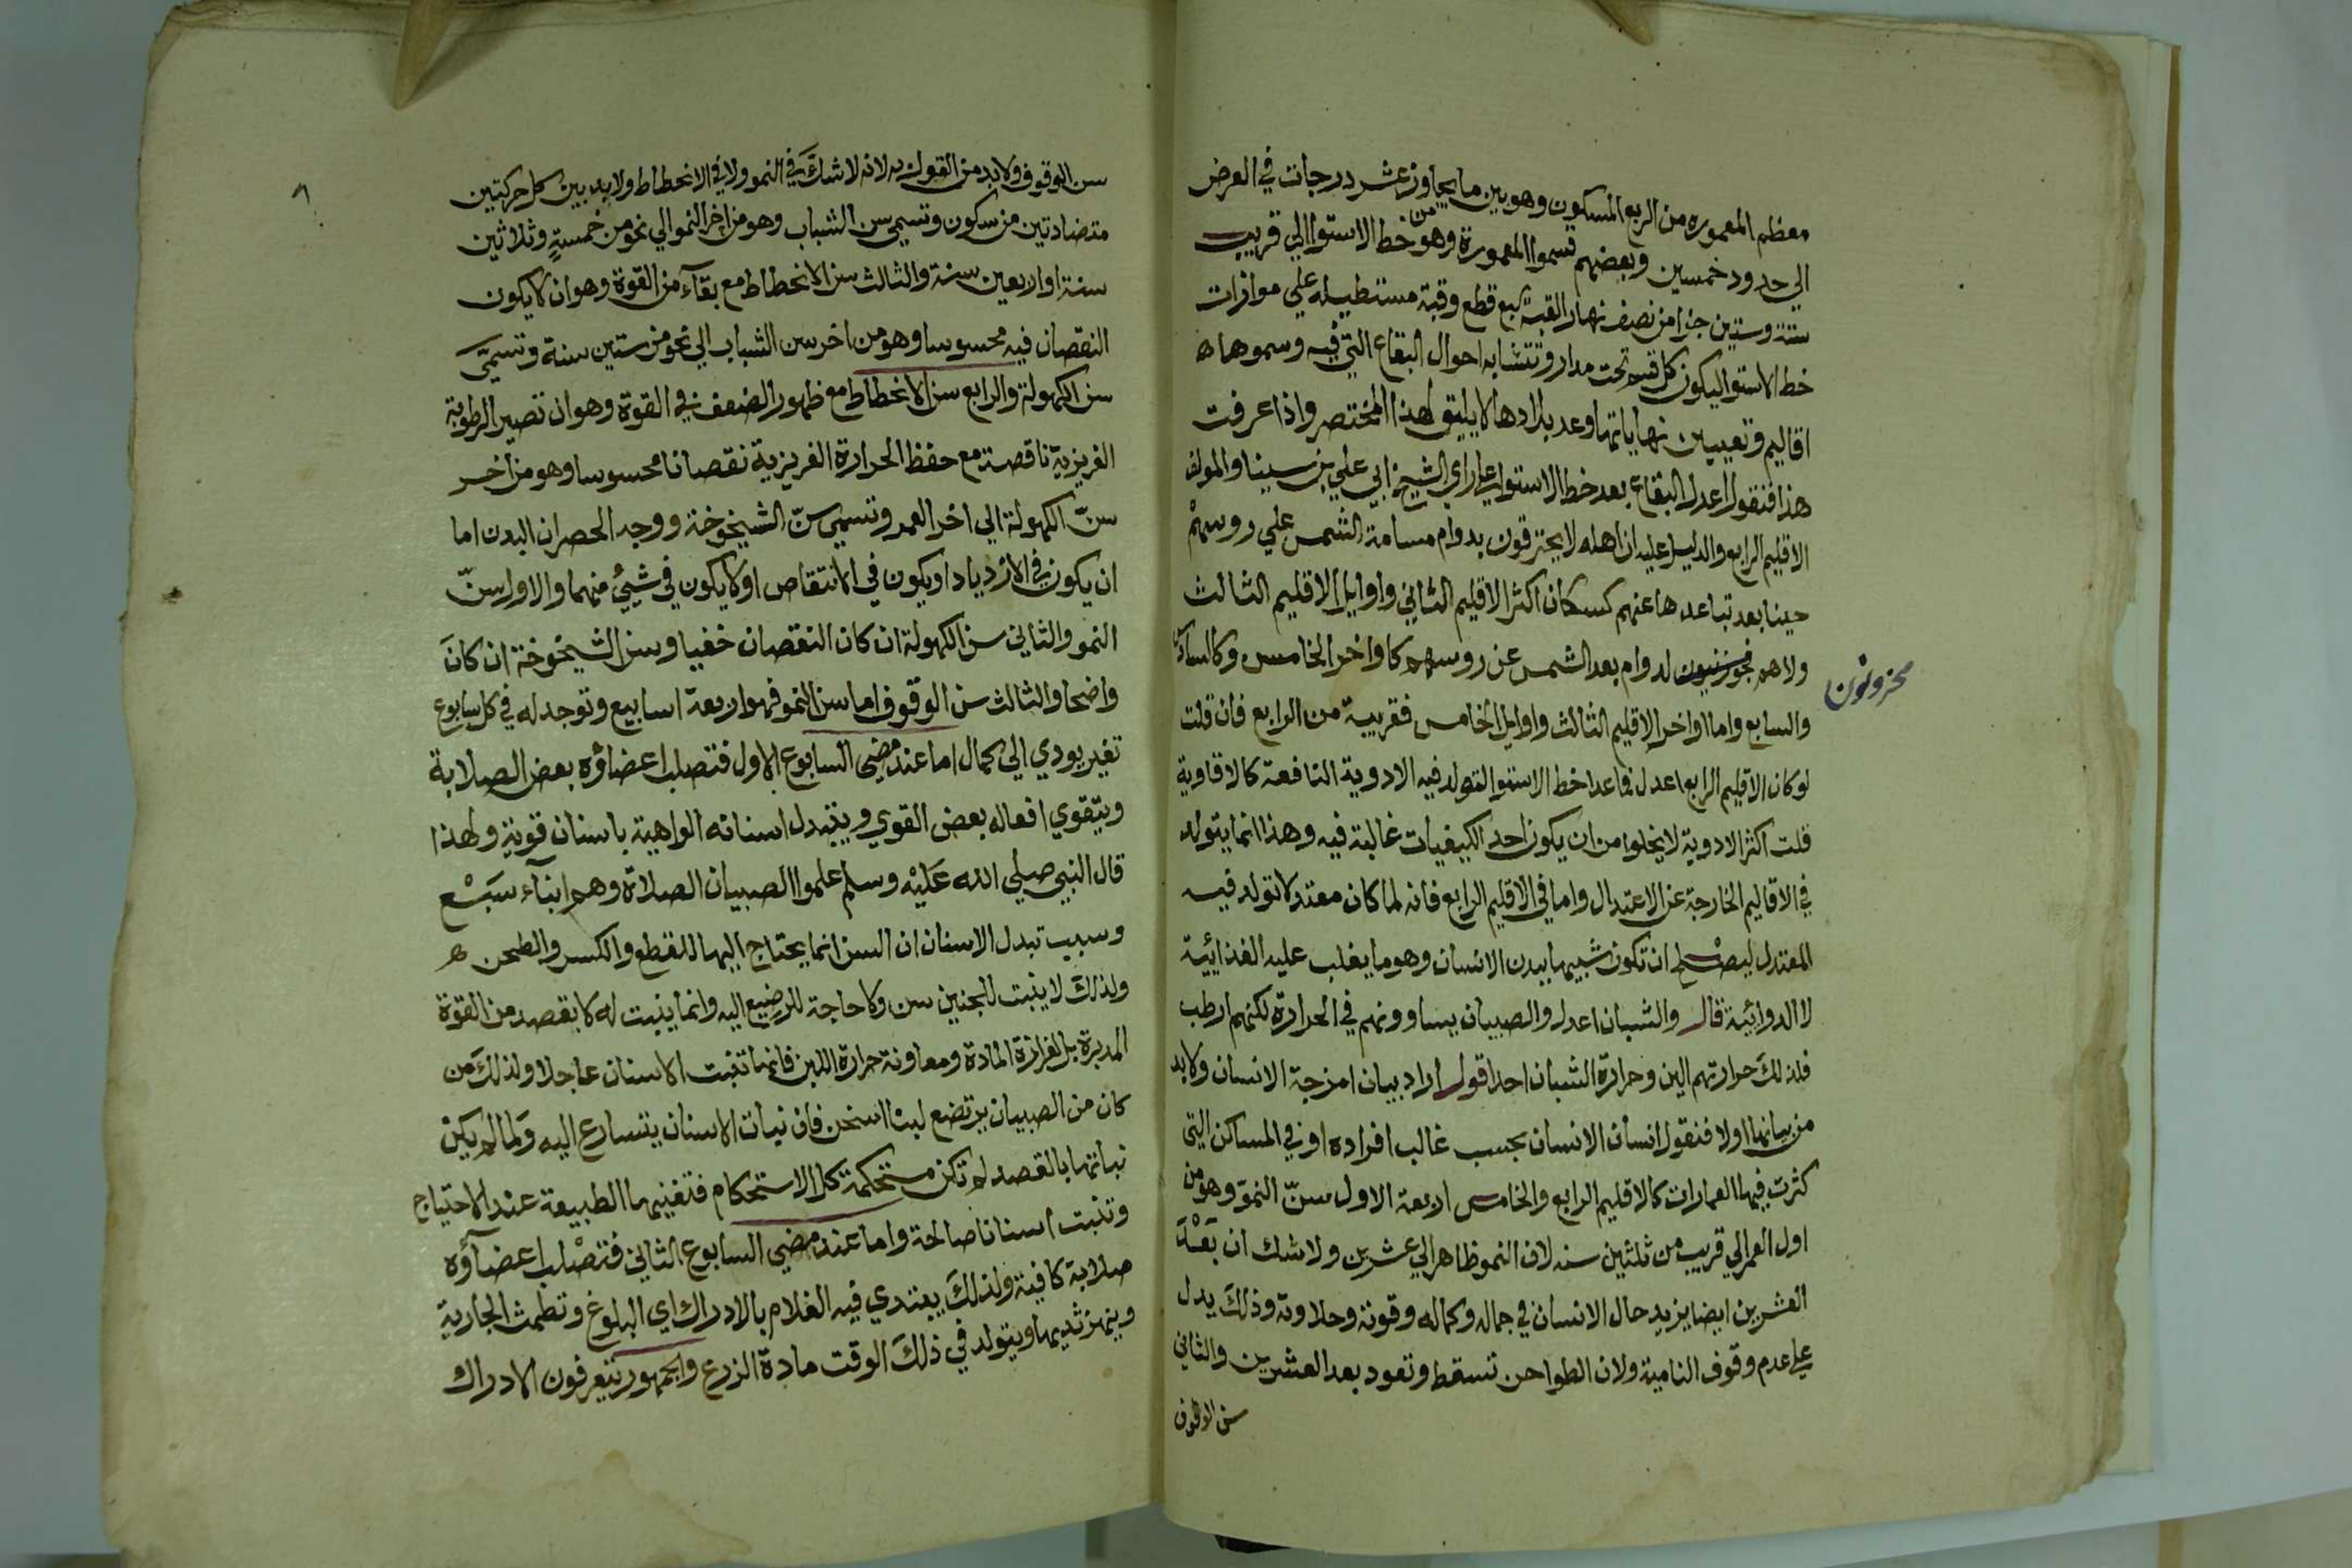 معظم المعموره من الربع المسكون وهو بين ما يجاوز عشر درجات في العرض
الي حدود خمسين وبعضهم قسموا المعمورة وهو من خط الاستوا الي قريب
ستة وستين جزا من نصف نهار القبة سبع قطع وقبة مستطيله علي موازات
خط الاستوا ليكون كل قسم تحت مدار وتتشابه احوال البقاع التي فيه وسموها ه
اقاليم وتعيين نهاياتها وعد بلادها لا يليق لهذا المختصر واذا عرفت
هذا فنقول اعدل البقاع بعد خط الاستوا علي راي الشيخ ابي علي بن سينا والمولف
الاقليم الرابع والدليل عليه ان اهله لا يحترقون بدوام مسامة الشمس علي روسهم
حينا بعد تباعدها عنهم كسكان اكثر الاقليم الثاني واوايل الاقليم الثالث
ولا هم لدوام بعد الشمس عن روسهم كاواخر الخامس وكالسادس
محزونون
والسابع واما اواخر الاقليم الثالث واوايل الخامس فقريبة من الرابع فان قلت
لو كان الاقليم الرابع اعدل فما عدا خط الاستوا لتولد فيه الادوية النافعة كالافاوية
قلت اكثر الادوية لا يخلوا من ان يكون احد الكيفيات غالبة فيه وهذا انما يتولد
في الاقاليم الخارجة عن الاعتدال واما في الاقليم الرابع فانه لما كان معتدلا تولد فيه
المعتدل ليصلح ان تكون شبيها ببدن الانسان وهو ما يغلب عليه الغذائية
لا الدوائية قال والشبان اعدل والصبيان يساوونهم في الحرارة لكنهم ارطب
فلذلك حرارتهم الين وحرارة الشبان احد اقول اراد بيان امزجة الانسان ولا بد
من بيانها اولا فنقول انسان الانسان بحسب غالب افراده او في المساكن التي
كثرت فيها العمارات كالاقليم الرابع والخامس اربعة الاول سنّ النموّ وهو من
اول العمر الي قريب من ثلثين سنه لان النمو ظاهر الي عشرين ولا شك ان بعْدَ
العشرين ايضا يزيد حال الانسان في جماله وكماله وقوته وحلاوته وذلك يدل
علي عدم وقوف النامية ولان الطواحن تسقط وتعود بعد العشرين والثاني
سن الوقوف
٨
سن الوقوف ولا بد من القول به لانه لا شك في النمو ولا في الانحطاط ولا بد بين كل حركتين
متضادتين من سكون وتسمي سن الشباب وهو من اخر النمو الي نحو من خمسةٍ وثلاثين
سنة او اربعين سنة والثالث سن الانحطاط مع بقآء من القوة وهو ان لا يكون
النقصان فيه محسوسا وهو من اخر سن الشباب الي نحو من ستين سنة وتسمّي
سن الكهولة والرابع سن الانحطاط مع ظهور الضعف في القوة وهو ان تصير الرطوبة
الغريزية ناقصة مع حفظ الحرارة الغريزية نقصانا محسوسا وهو من اخر
سنّ الكهولة الي اخر العمر وتسمي سنّ الشيخوخة ووجه الحصر ان البدن اما
ان يكون في الازدياد او يكون في الانتقاص او لا يكون في شيئ منهما والاول سنّ
النمو والثاني سن الكهولة ان كان النقصان خفيا وسن الشيخوخة ان كان
واضحا والثالث سن الوقوف اما سن النمو فهو اربعة اسابيع وتوجد له في كل سابوع
تغير يودي الي كمال اما عند مضي السابوع الاول فتصلب اعضاؤه بعض الصلابة
ويتقوي افعاله بعض القوي ويتبدل اسنانه الواهية باسنان قوية ولهذا
قال النبي صلي الله عَليْه وسلم علموا الصبيان الصلاة وهم ابناء سَبْع
وسبب تبدل الاسنان ان السن انما يحتاج اليها للقطع والكسر والطحن ه
ولذلك لا ينبت للجنين سن ولا حاجة للرضيع اليه وانما ينبت له لا بقصد من القوة
المدبرة بل لغزارة المادة ومعاونة حرارة اللبن فانها تنبت الاسنان عاجلا ولذلك من
كان من الصبيان يرتضع لبنا اسخن فان نبات الاسنان يتسارع اليه ولما لم يكن
نباتها بالقصد لم تكن مستحكمة كل الاستحكام فتغنيها الطبيعة عند الاحتياج
وتنبت اسنانا صالحة واما عند مضي السابوع الثاني فتصْلب اعضآؤه
صلابة كافية ولذلك يبتدي فيه الغلام بالادراك اي البلوغ وتطمث الجارية
وينهز ثديها ويتولد في ذلك الوقت مادة الزرع والجمهور يتعرفون الادراك